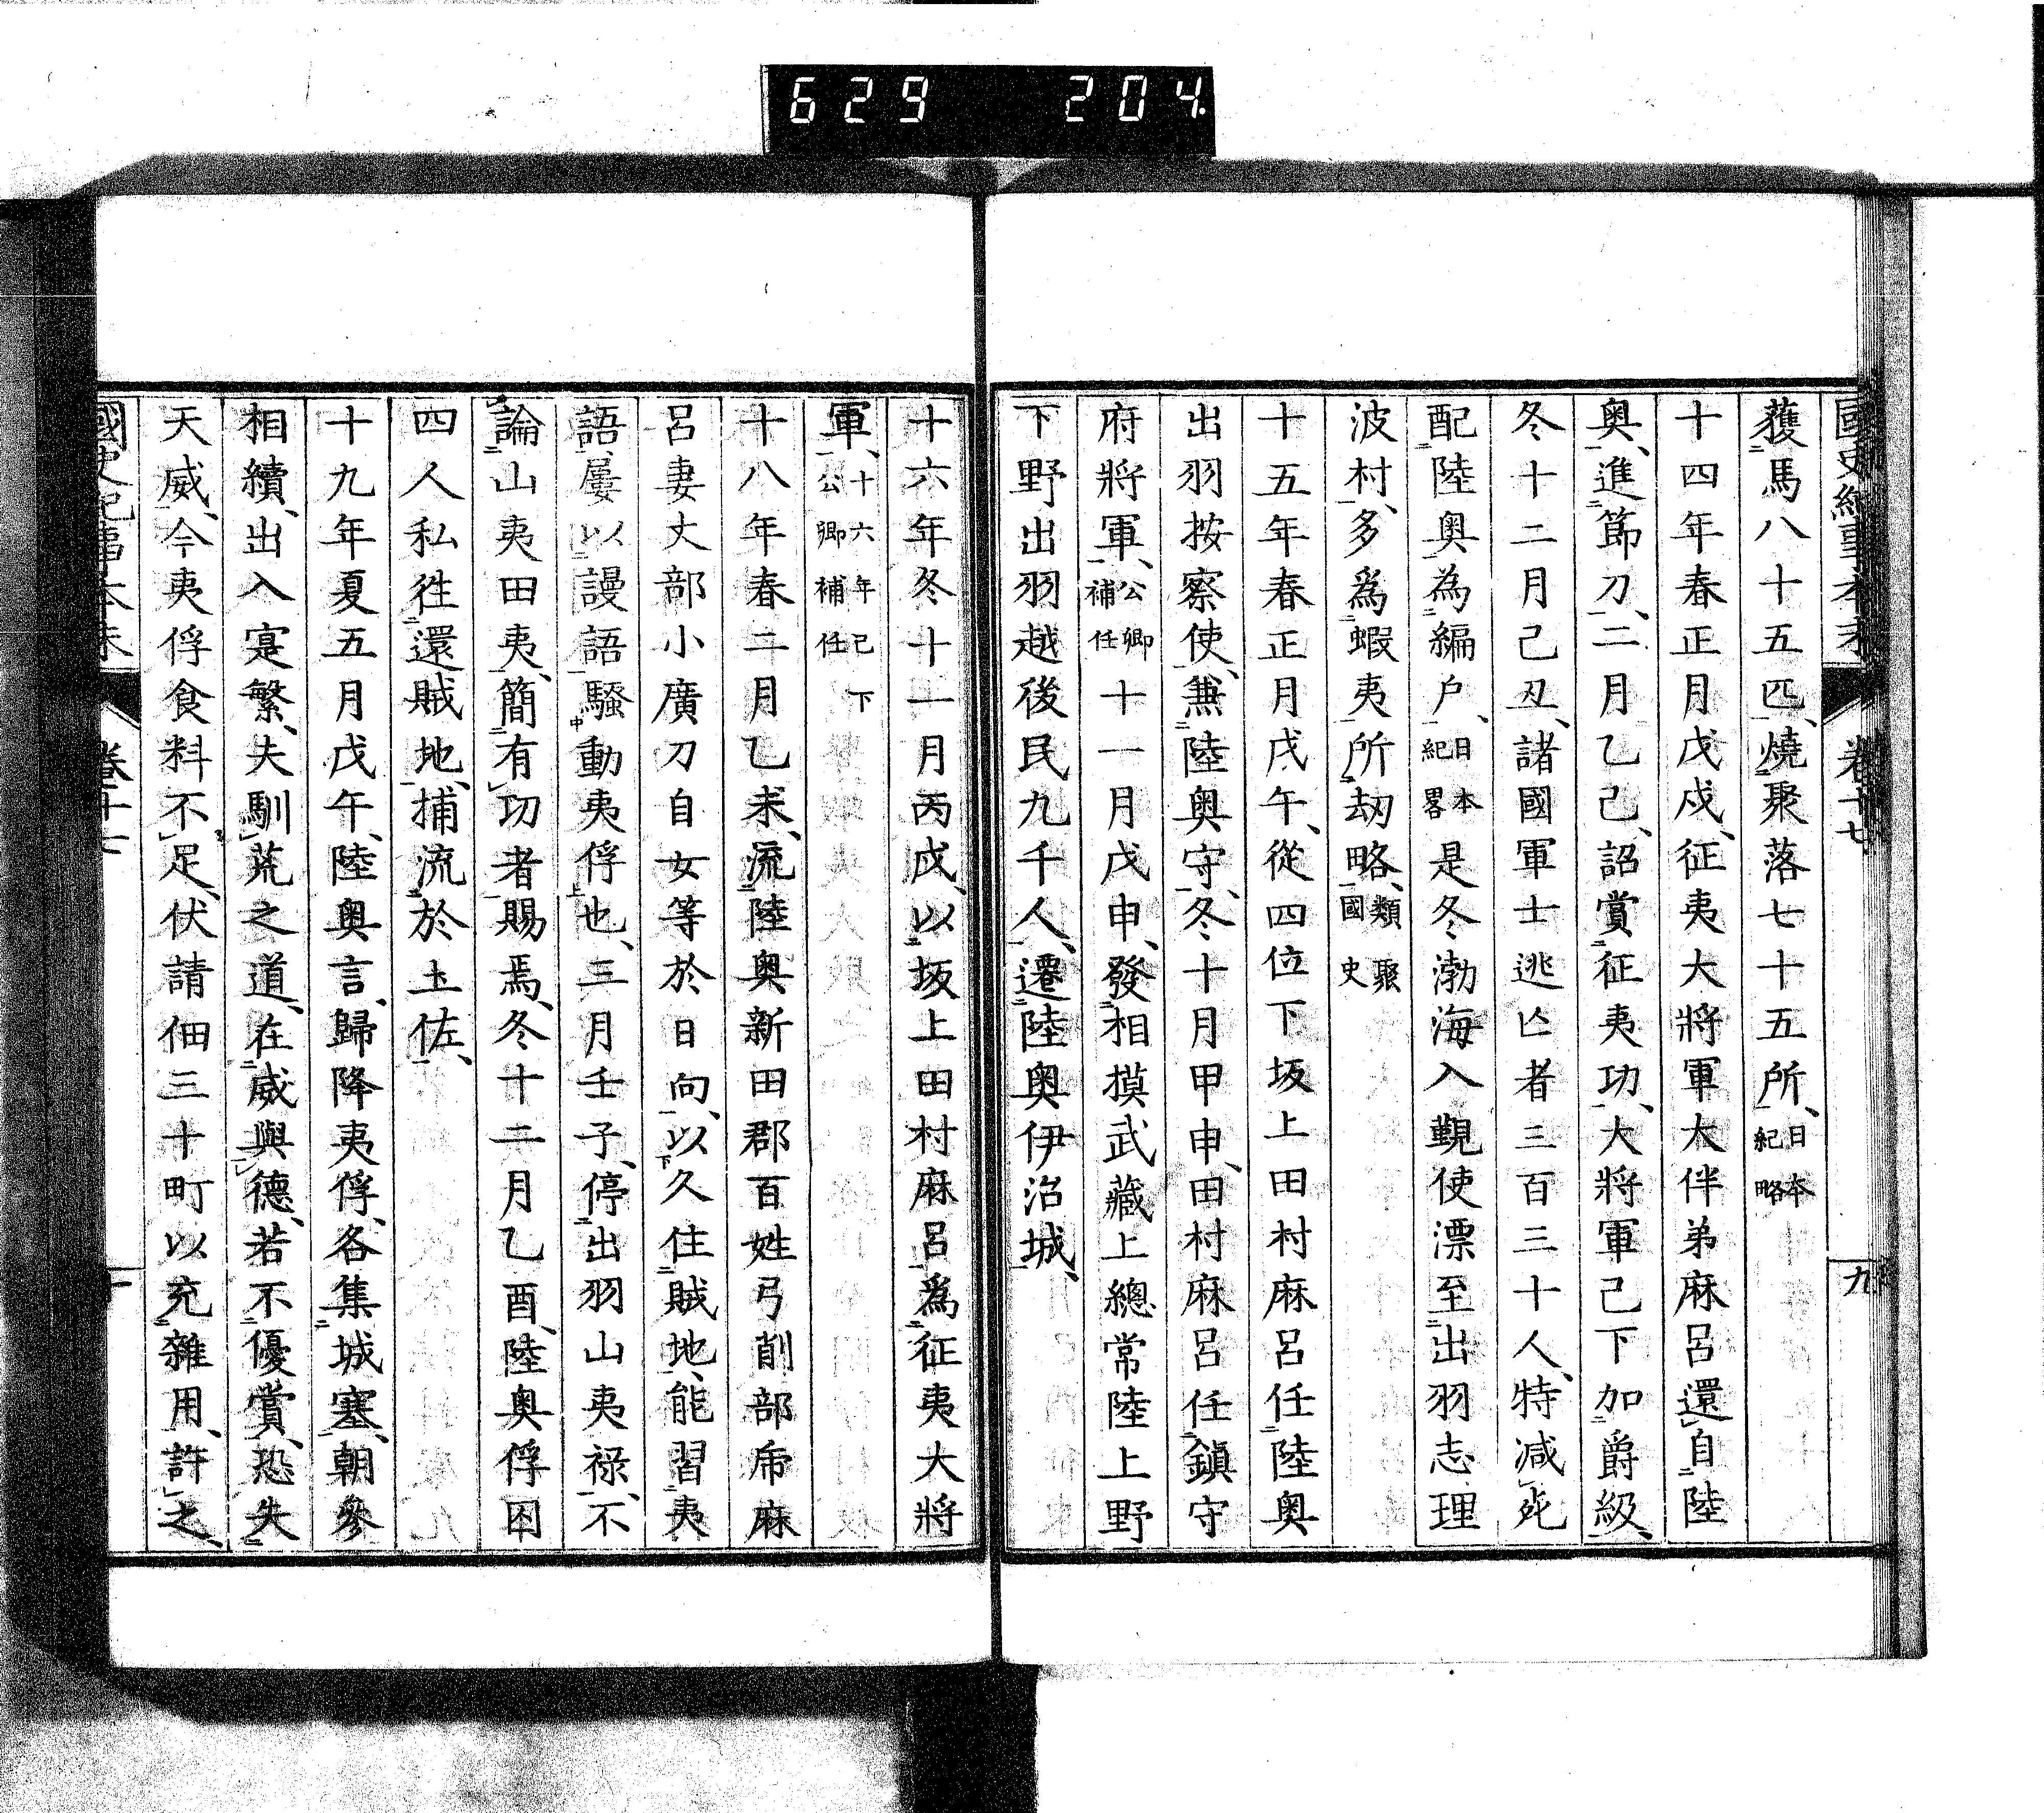 629 204
國史紀事本末 卷十七 九
獲馬八十五匹、燒聚落七十五所、日本紀略
十四年春正月戊戌、征夷大將軍大伴弟麻呂還自陸
奧、進節刀、二月乙己、詔賞征夷功、大將軍己下加爵級、
冬十二月己丑、諸國軍士逃亡者三百三十人、特減死
配陸奧為編戶、日本紀畧是冬渤海入覲使漂至出羽志理
波村、多爲蝦夷所劫略、類聚國史
十五年春正月戊午、從四位下坂上田村麻呂任陸奧
出羽按察使、兼陸奧守、冬十月甲申、田村麻呂任鎮守
府將軍、公卿補任十一月戊申、發相摸武藏上總常陸上野
下野出羽越後民九千人、遷陸奧伊治城、
十六年冬十一月丙戌、以坂上田村麻呂爲征夷大將
軍、十六年已下公卿補任
十八年春二月乙未、流陸奧新田郡百姓弓削部虎麻
呂妻丈部小廣刀自女等於日向、以久住賊地、能習夷
語、屢以謾語騷動夷俘也、三月壬子、停出羽山夷祿、不
論山夷田夷、簡有功者賜焉、冬十二月乙酉、陸奧俘囚
四人私徃還賊地、捕流於土佐、
十九年夏五月戊午、陸奧言、歸降夷俘、各集城塞、朝參
相續、出入寔繁、夫馴荒之道、在威與德、若不優賞、恐失
天威、今夷俘食料不足、伏請佃三十町以充雜用、許之、
國史紀事本末 卷十七 十